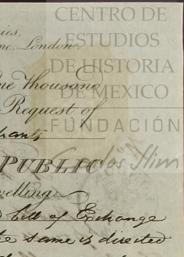 CENTRO DE
ESTUDIOS
DE HISTORIA
DE MEXICO
FUNDACIÓN
Carlos Slim
London
One Thousand
Request of
hants
PUBLIC
welling
Bill of Exchange
same is directed